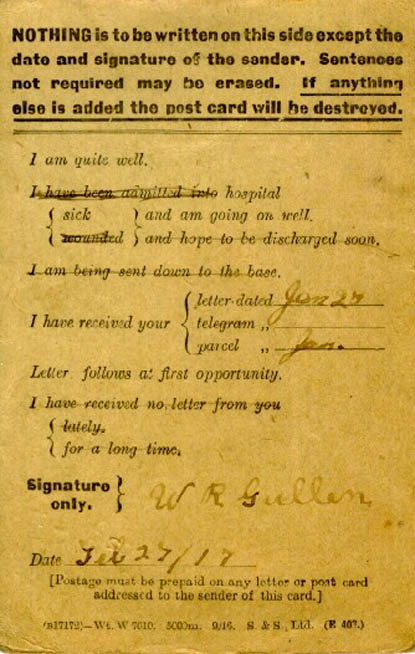 NOTHING is to be written on this side except the
date and signature of the sender. Sentences
not required may be erased. If anything
else is added the post card will be destroyed.
I am quite well.
I have been admitted into hospital
{ sick } and am going on well.
{ wounded } and hope to be discharged soon.
I am being sent down to the base.
{ letter dated Jan 27
I have received your { telegram ,,
{ parcel ,, Jan.
Letter follows at first opportunity.
I have received no letter from you
{ lately.
{ for a long time.
Signature only. } W R Gullen
Date Feb 27/17
[Postage must be prepaid on any letter or post card
addressed to the sender of this card.]
(B17172)—Wt. W 7610. 5000m. 9/16. S. & S., Ltd. (E 407.)